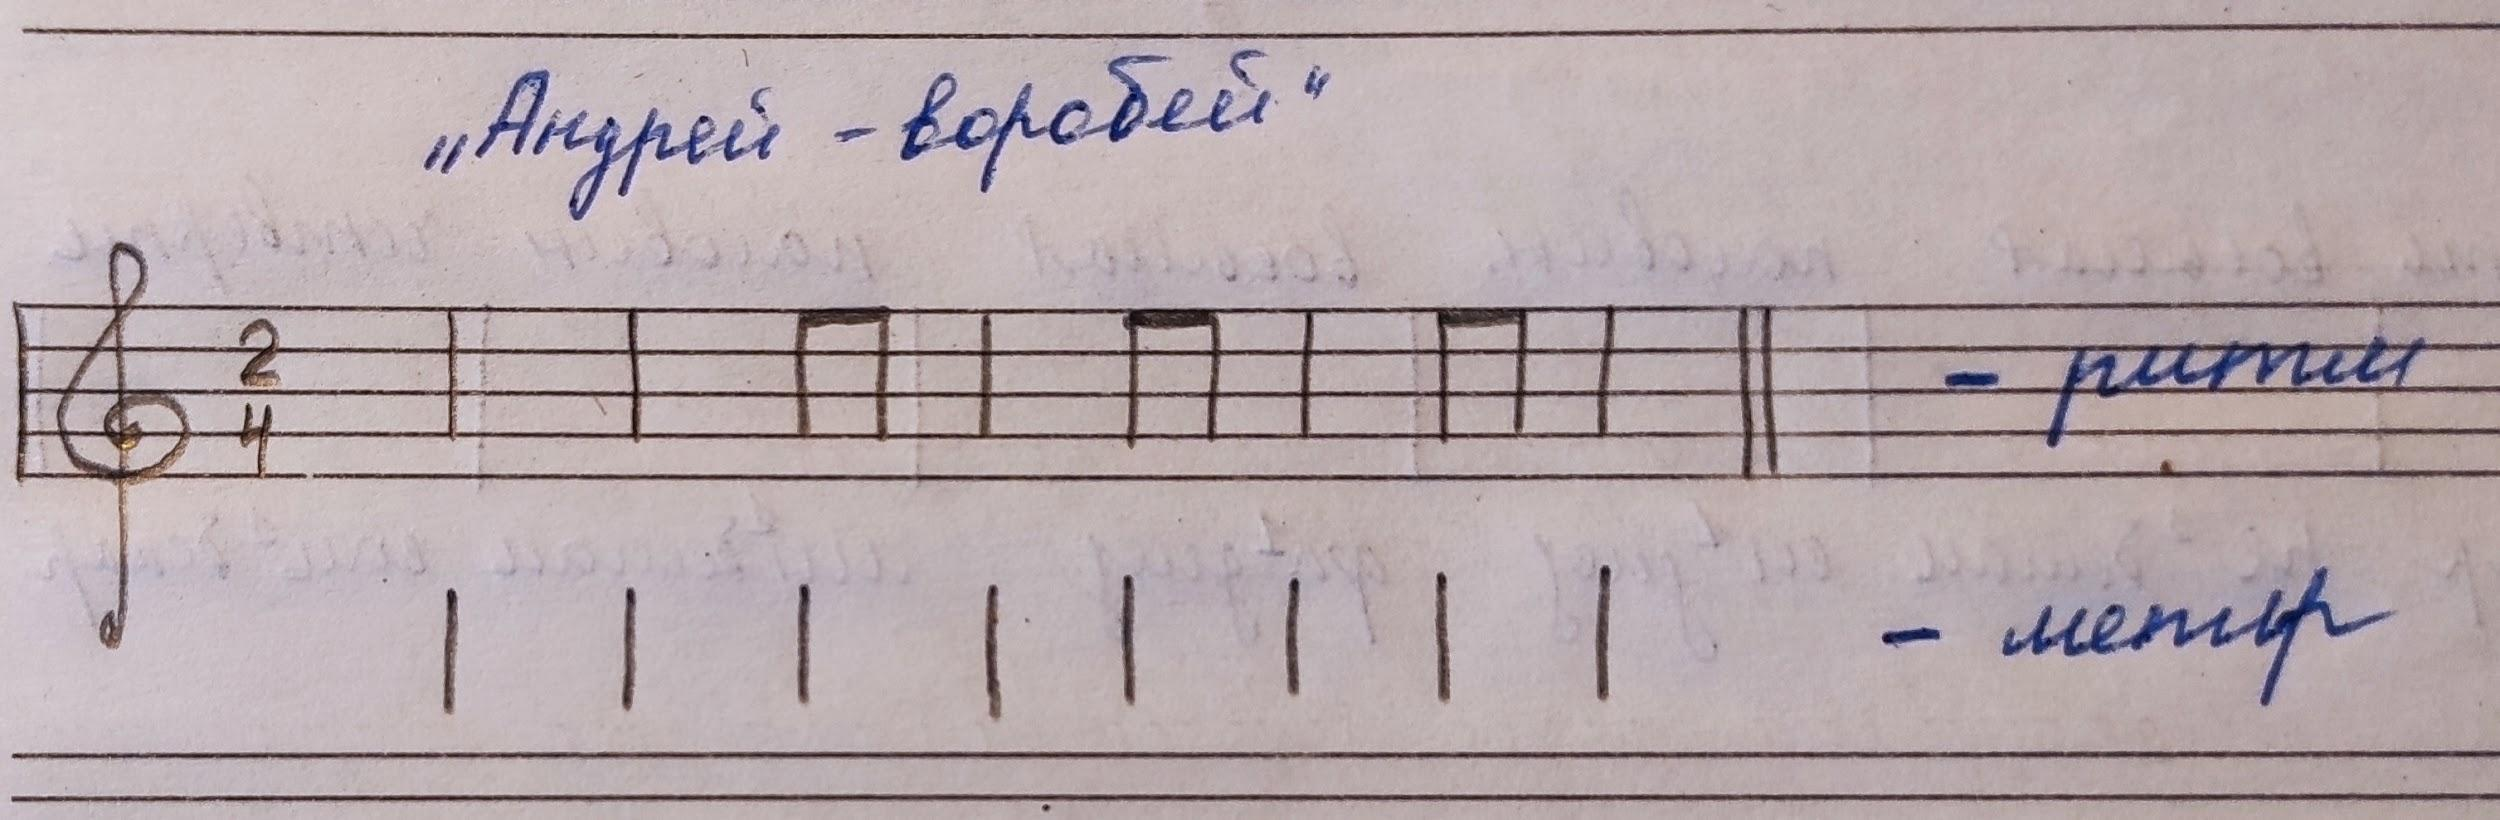 „Андрей - воробей“
2
4
- ритм
- метр